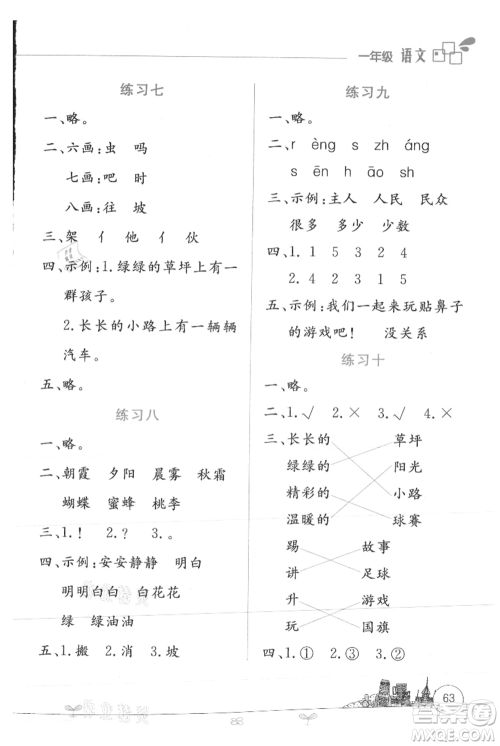 一年级 语文
练习七
一、略。
二、六画：虫 吗
七画：吧 时
八画：往 坡
三、架 亻 他 亻 伙
四、示例：1.绿绿的草坪上有一
群孩子。
2.长长的小路上有一辆辆
汽车。
五、略。
练习八
一、略。
二、朝霞 夕阳 晨雾 秋霜
蝴蝶 蜜蜂 桃李
三、1.！ 2.？ 3.。
四、示例：安安静静 明白
明明白白 白花花
绿 绿油油
五、1.搬 2.消 3.坡
练习九
一、略。
二、r èng s zh áng
s ēn h āo sh
三、示例：主人 人民 民众
很多 多少 少数
四、1. 1 5 3 2 4
2. 4 2 1 3 5
五、示例：我们一起来玩贴鼻子
的游戏吧！ 没关系
练习十
一、略。
二、1.√ 2.× 3.× 4.√
三、长长的 草坪
绿绿的 阳光
精彩的 小路
温暖的 球赛
踢 故事
讲 足球
升 游戏
玩 国旗
四、1.① 2.③ 3.②
63